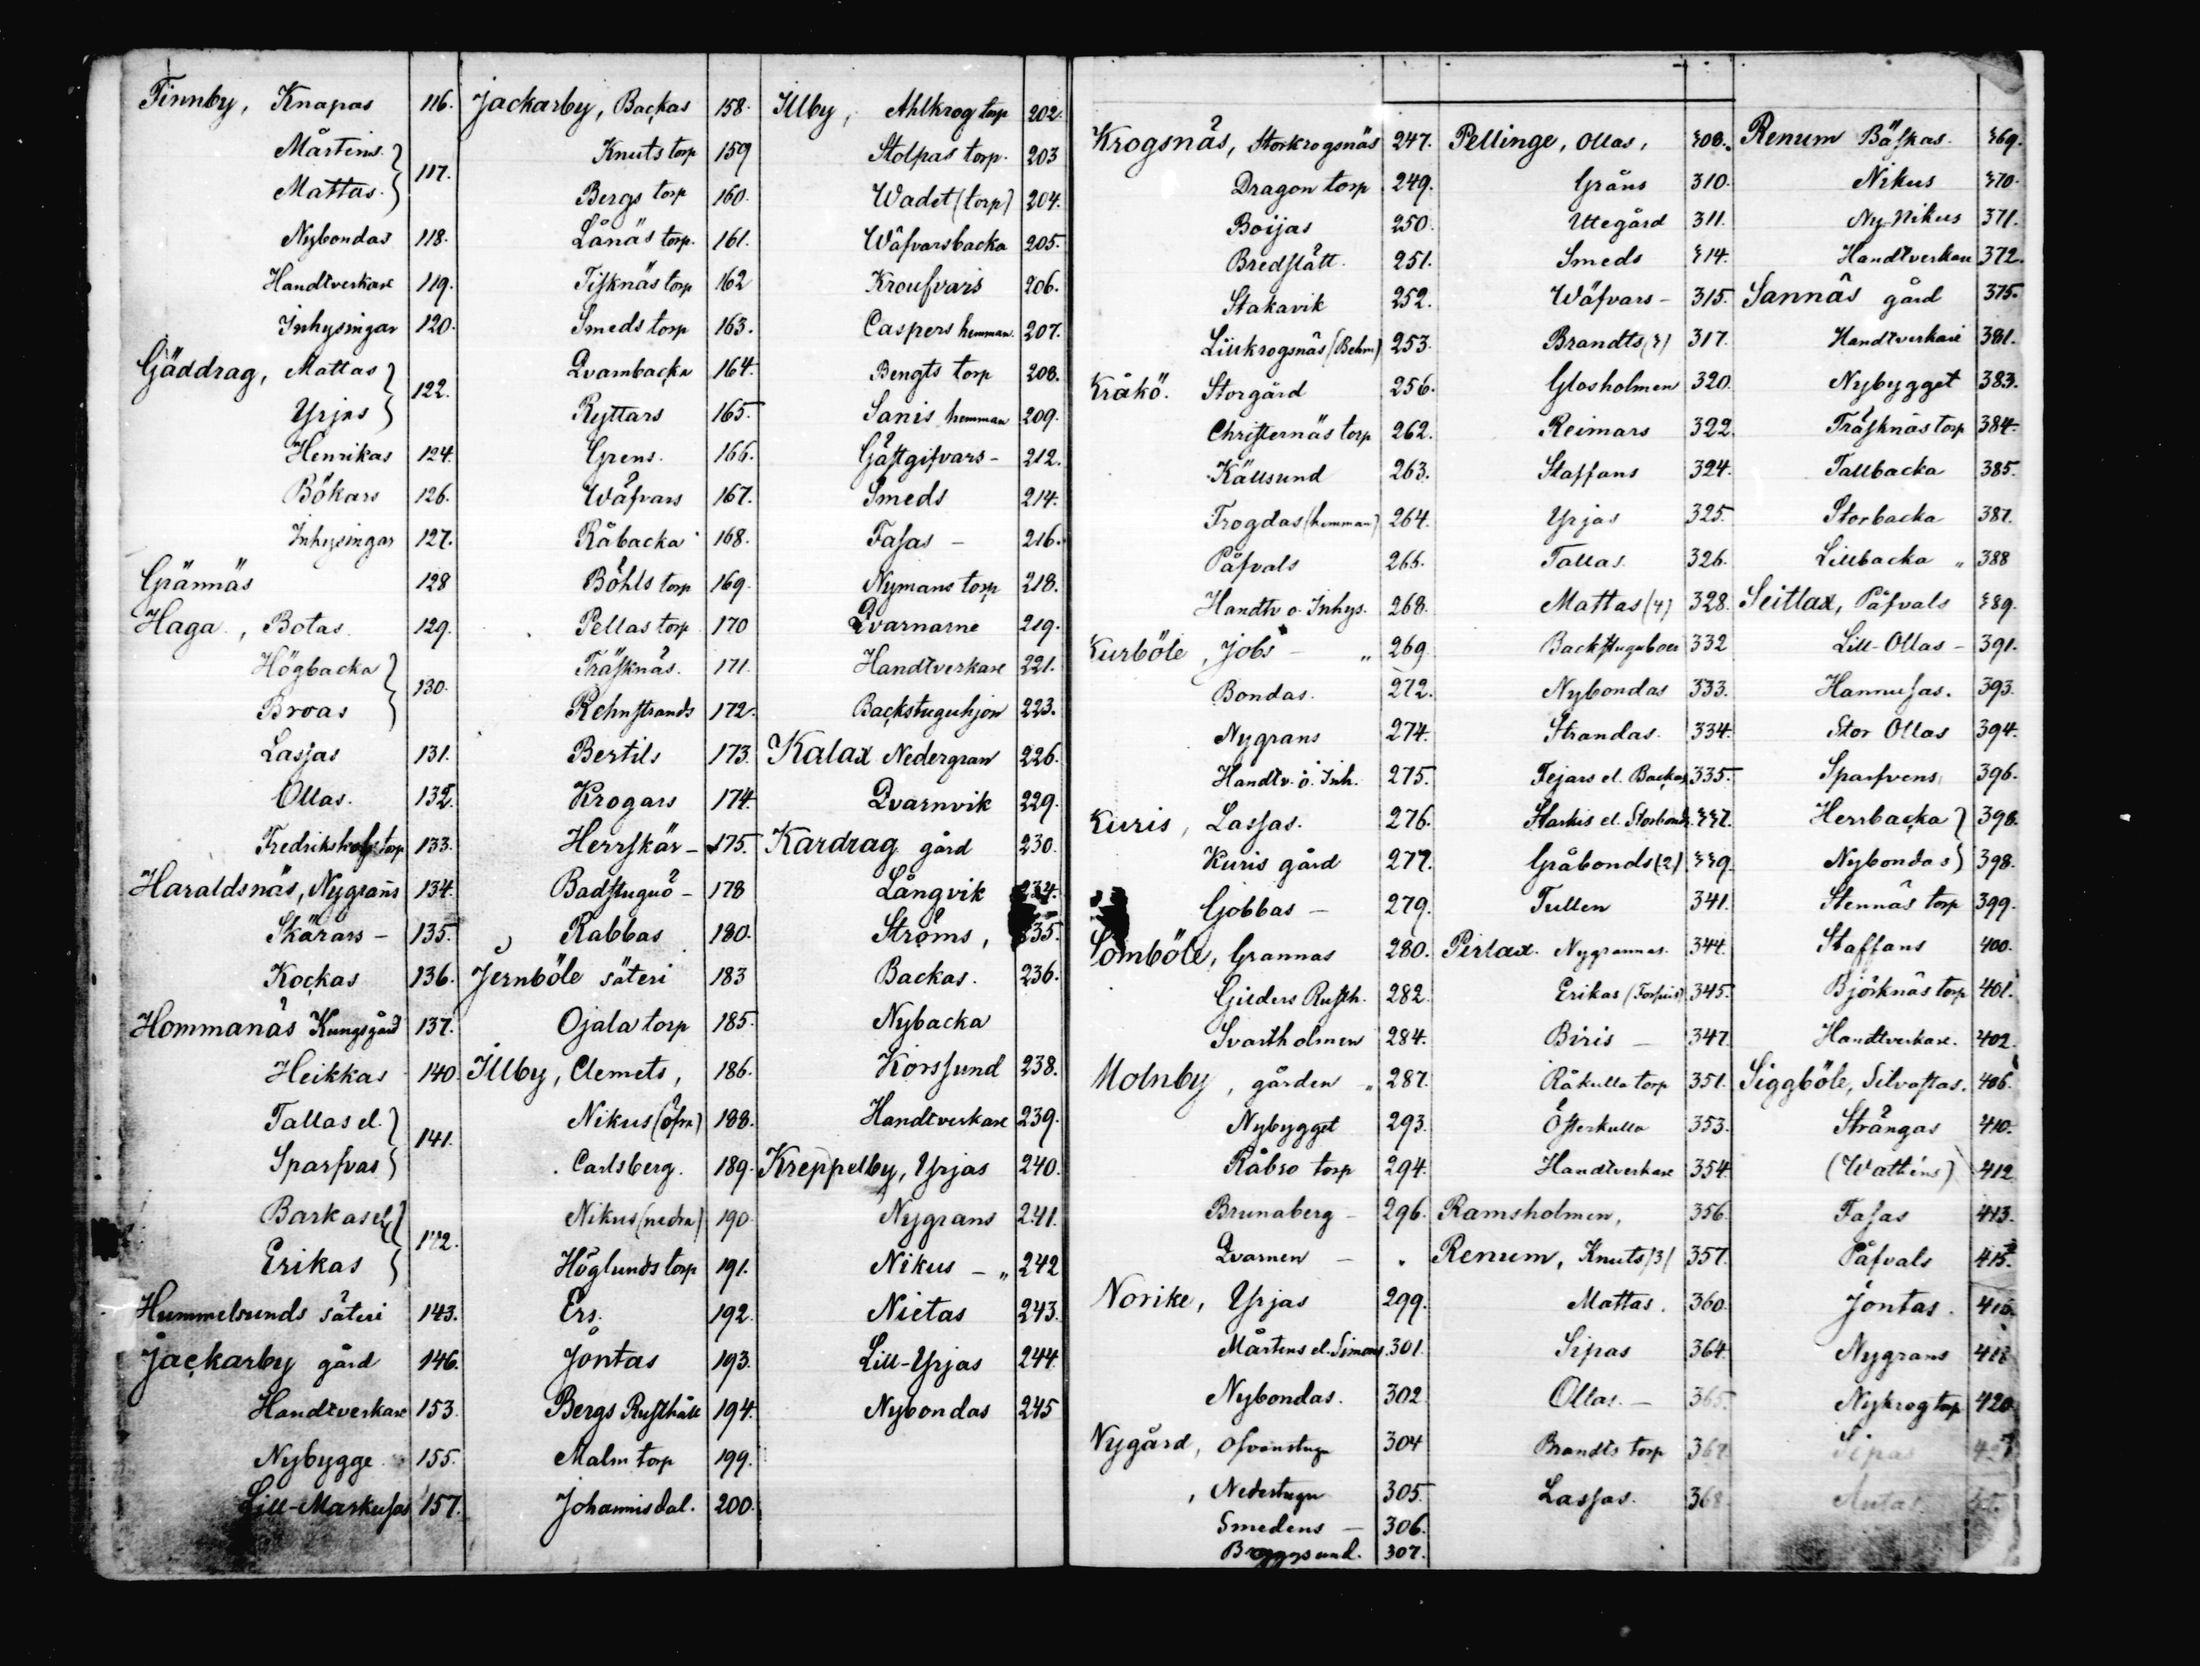 Finnby, Knapas 116.
Mårtens }
Mattas } 117.
Nybondas 118.
Handtverkare 119.
Inhysingar 120.
Gäddrag, Mattas }
Yrjas } 122.
Henrikas 124.
Bökars 126.
Inhysingar 127.
Grännäs 128
Haga, Botas 129.
Högbacka }
Broas } 130.
Lassas 131.
Ollas. 132.
Fredrikshofs torp 133.
Haraldsnäs, Nygrans 134.
Skärars - 135.
Kockas 136.
Hommanäs Kungsgård 137.
Heikkas 140.
Tallas el. }
Sparfvas } 141.
Barkas el. }
Erikas } 142.
Hummelsunds säteri 143.
Jackarby gård 146.
Handtverkare 153.
Nybygge 155.
Lill-Markusas 157.
Jackarby, Backas 158.
Knuts torp 159
Bergs torp 160.
Lånäs torp. 161.
Fisknäs torp 162
Smeds torp 163.
Qvambacka 164.
Ryttars 165.
Grens. 166.
Wäfvars 167.
Råbacka 168.
Böhls torp 169.
Pellas torp 170
Träsknäs. 171.
Rehnstrands 172.
Bertils 173.
Krogars 174.
Herrskär - 175.
Badstuguö - 178
Rabbas 180.
Jernböle säteri 183
Ojala torp 185.
Illby, Clemets, 186.
Nikus (öfra) 188.
Carlsberg. 189.
Nikus (nedra) 190.
Höglunds torp 191.
Ers. 192.
Jöntas 193.
Bergs Rusthåll 194.
Malm torp 199.
Johannisdal. 200.
Illby, Ahlkrog torp 202.
Stolpas torp. 203
Wadet (torp) 204.
Wäfvarsbacka 205.
Kroufvars 206.
Caspers hemman. 207.
Bengts torp 208.
Sanis hemman 209.
Gästgifvars - 212.
Smeds 214.
Fasas - 216.
Nymans torp 218.
Qvarnarne 219.
Handtverkare 221.
Backstuguhjon 223.
Kalax Nedergran 226.
Qvarnvik 229.
Kardrag gård 230.
Långvik 234.
Ströms, 235.
Backas. 236.
Nybacka
Korssund 238.
Handtverkare 239.
Kreppelby, Yrjas 240.
Nygrans 241.
Nikus - „ 242
Nietas 243.
Lill-Yrjas 244.
Nybondas 245
Krogsnäs, Storkrogsnäs 247.
Dragon torp 249.
Boijas 250.
Bredslätt. 251.
Stakavik 252.
Lillkrogsnäs (Behm) 253.
Kråkö. Storgård 256.
Christernäs torp 262.
Källsund 263.
Trogdas (hemman) 264.
Påfvals 266.
Handtv. o. Inhys. 268.
Kurböle, Jobs - „ 269.
Bondas. 272.
Nygrans 274.
Handtv. o. Inh. 275.
Kuris, Lassas. 276.
Kuris gård 277.
Gobbas - 279.
Lomböle, Grannas 280.
Gilders Rusth. 282.
Svartholmen 284.
Molnby, gården „ 287.
Nybygget 293.
Råbro torp 294.
Brunaberg - 296.
Qvarnen - „
Norike, Yrjas 299.
Mårtens el. Simons 301.
Nybondas. 302
Nygård, Ofvanstugu 304
Nederstugu 305.
Smedens - 306.
Bryggsund. 307.
Pellinge, Ollas, 308.
Gråns 310.
Uttegård 311.
Smeds 314.
Wäfvars - 315.
Brandts 317.
Glosholmen 320.
Reimars 322.
Staffans 324.
Yrjas 325.
Tallas. 326.
Mattas (4) 328.
Backstuguboer 332
Nybondas 333.
Strandas. 334.
Tejars el. Backas 335.
Starkis el. Storbonds 337.
Gråbonds (2) 339.
Tullen 341.
Pirlax. Nygrannas. 344.
Erikas 345.
Biris - 347.
Råkulla torp 351.
Österkulla 353.
Handtverkare 354.
Ramsholmen, 356.
Renum, Knuts /3/ 357.
Mattas. 360.
Sipas 364.
Ollas. - 365.
Brandts torp 367.
Lassas. 368.
Renum Bäskas. 369.
Nikus 370.
Ny-Nikus 371.
Handtverkare 372.
Sannäs gård 375.
Handtverkare 381.
Nybygget 383.
Träsknäs torp 384.
Tallbacka 385.
Storbacka 387.
Lillbacka „ 388
Seitlax, Påfvals 389.
Lill-Ollas - 391.
Hannusas. 393.
Stor Ollas 394.
Sparfvens 396.
Herrbacka } 398.
Nybondas } 398.
Stennäs torp 399.
Staffans 400.
Björknäs torp 401.
Handtverkare. 402.
Siggböle, Silvastas. 406.
Strångas 410.
(Wathéns) 412
Fasas 413.
Påfvals 415.
Jöntas. 416.
Nygrans 418
Nykrog torp 420
Sipas
Antas